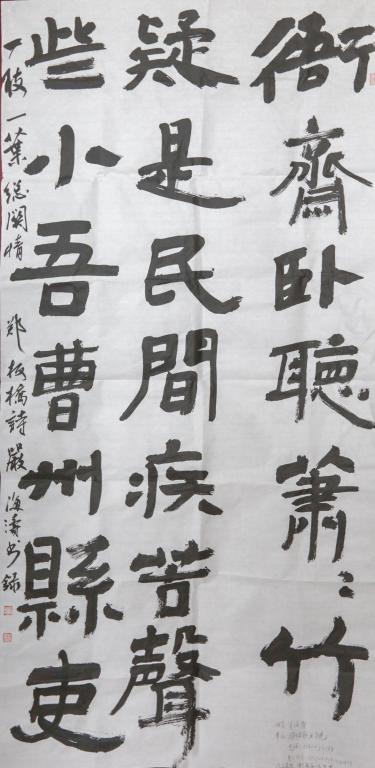 衙齋卧聽蕭〻竹
疑是民間疾苦聲
些小吾曹州縣吏
一枝一葉總關情 鄭板橋詩 嚴海濤书錄